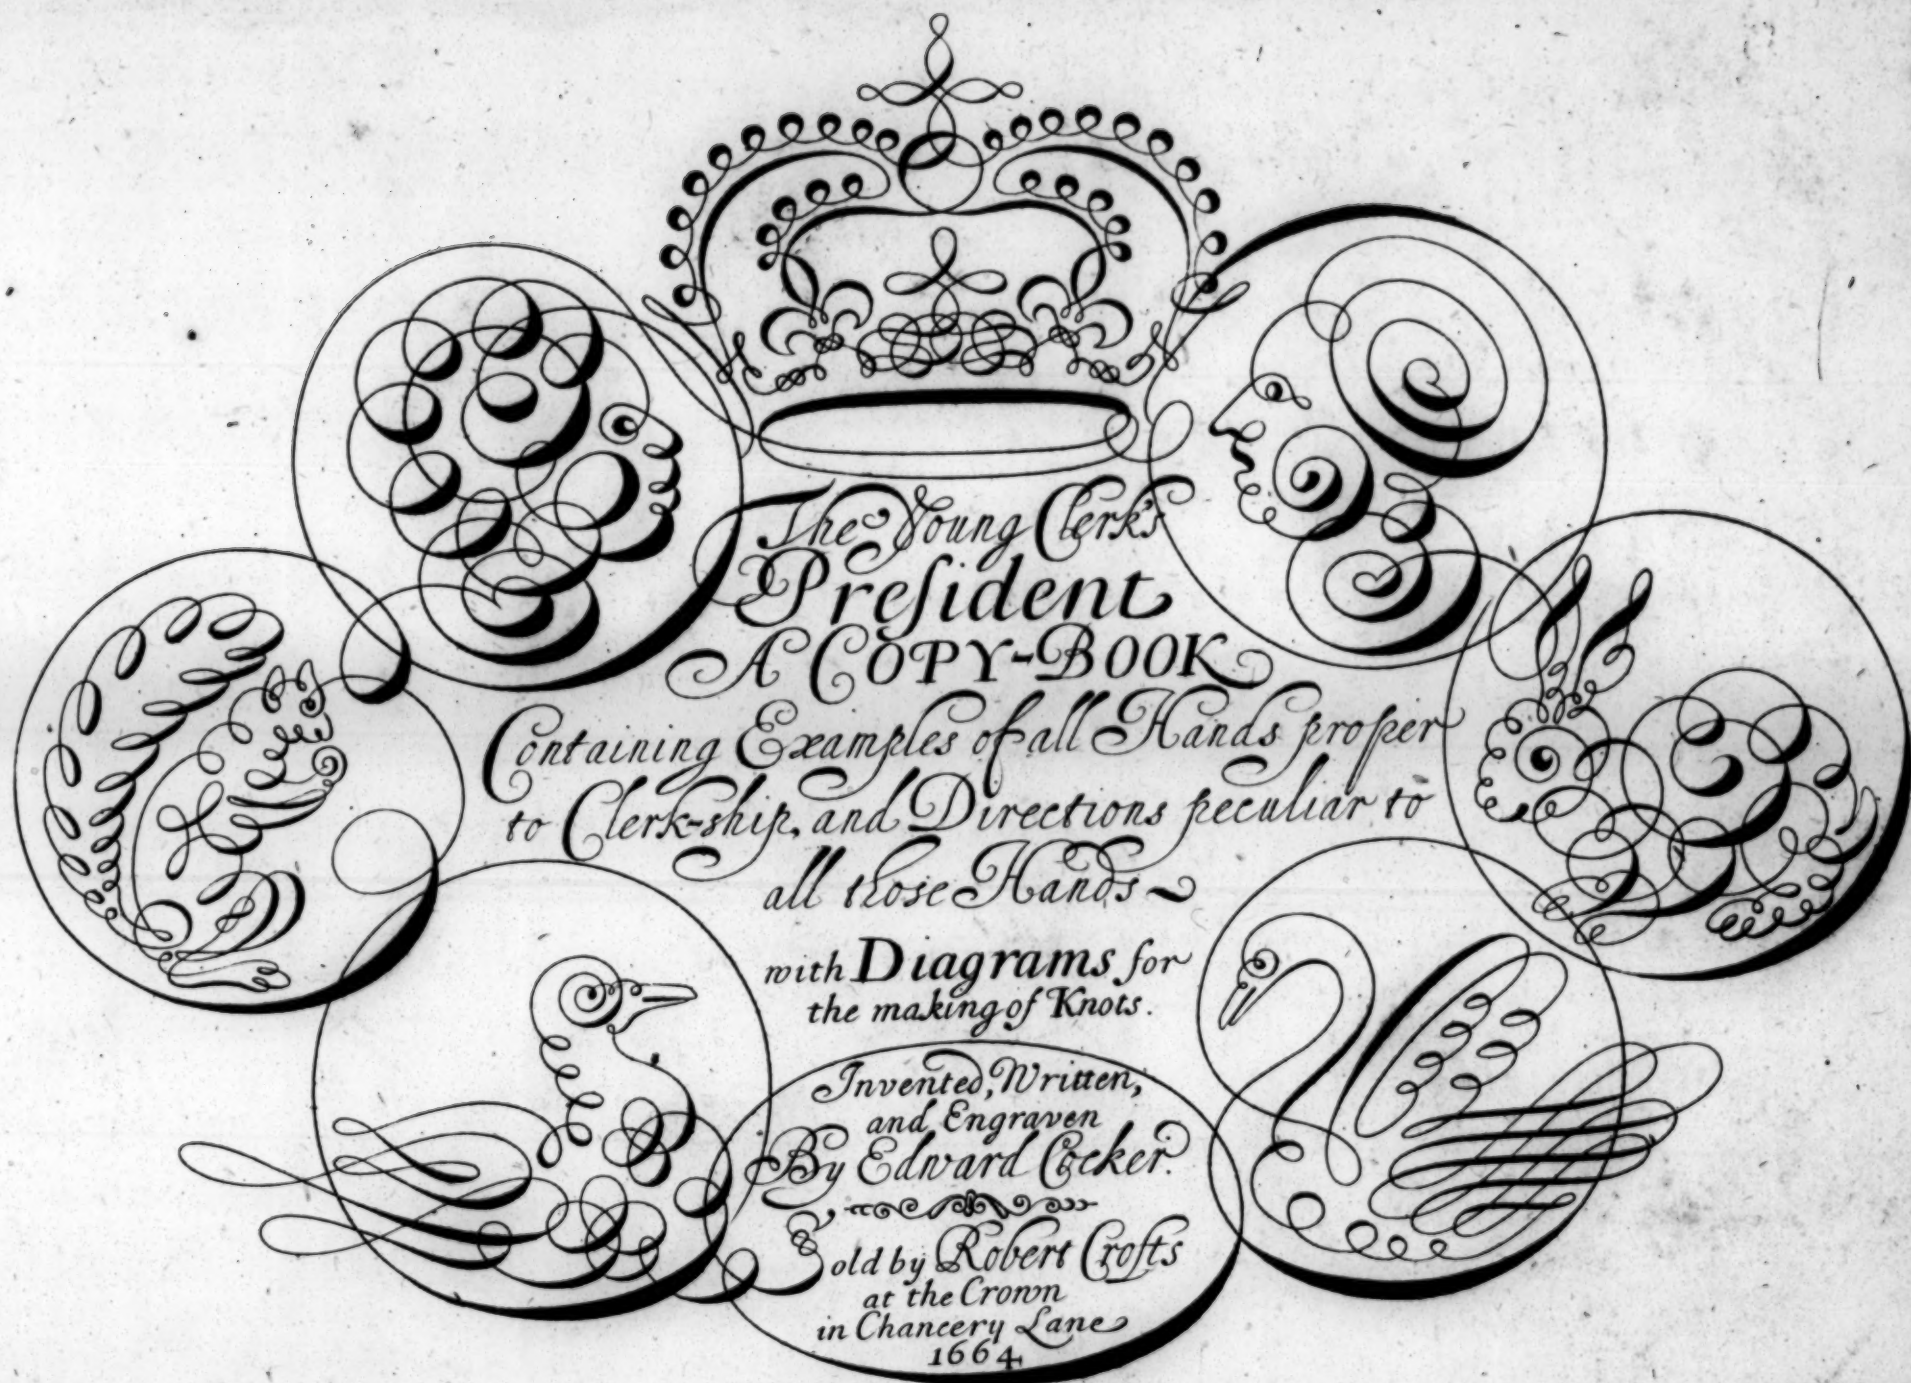 The Young Clerk's
Preſident
A COPY-BOOK
Containing Examples of all Hands proper
to Clerk-ship, and Directions peculiar to
all those Hands
with Diagrams for
the making of Knots.
Invented, Written,
and Engraven
By Edward Cocker.
Sold by Robert Crofts
at the Crown
in Chancery Lane
1664